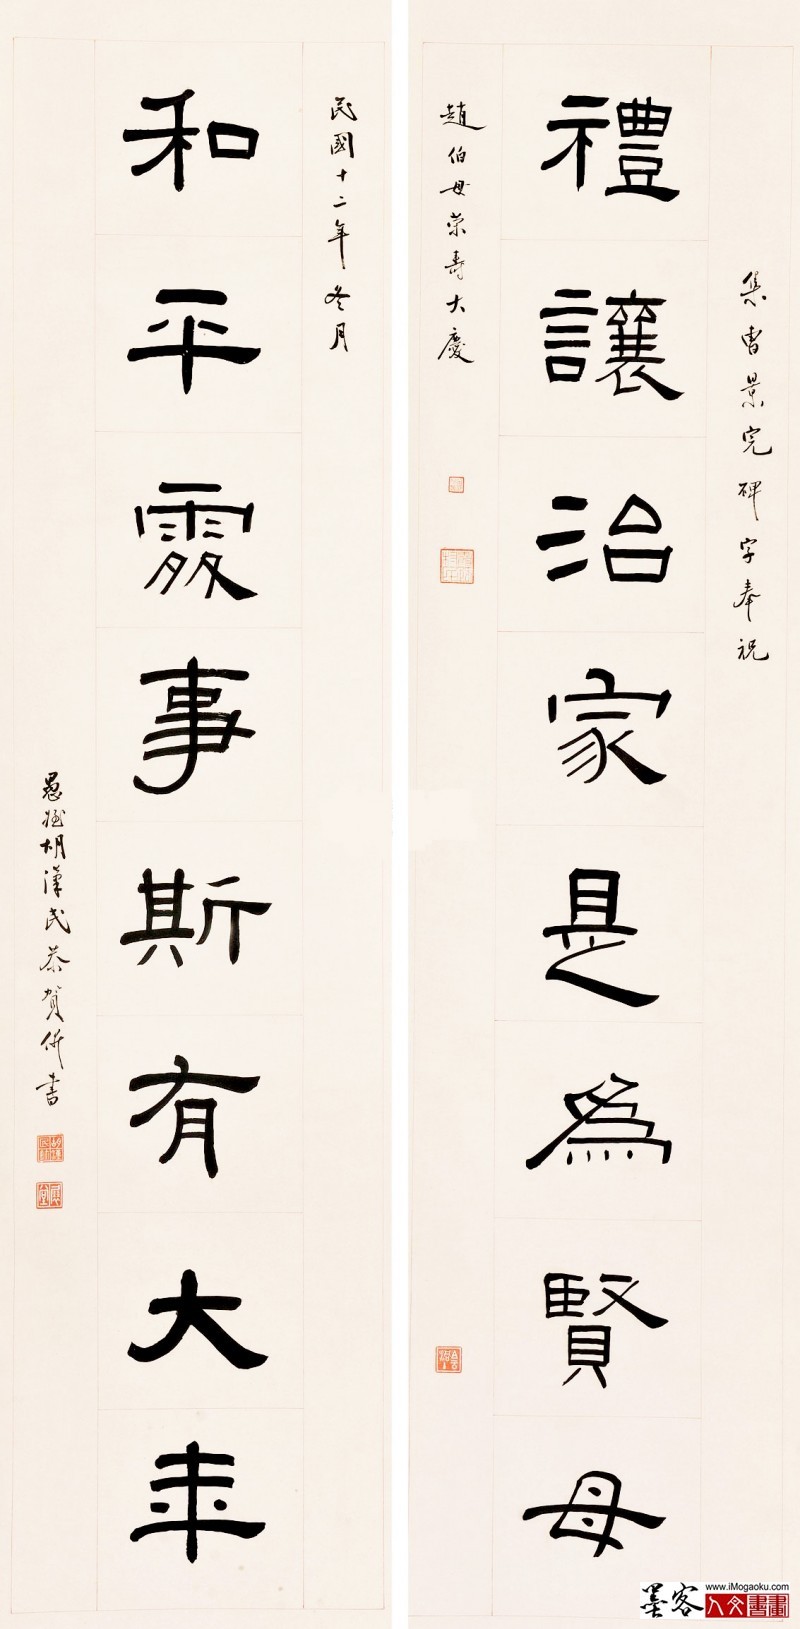 集曹景完碑字奉祝
禮讓治家是爲賢母
趙伯母榮壽大慶
民國十二年冬月
和平處事斯有大年
愚姪胡漢民恭賀併書
墨客
www.iMogaoku.com
人文書畫